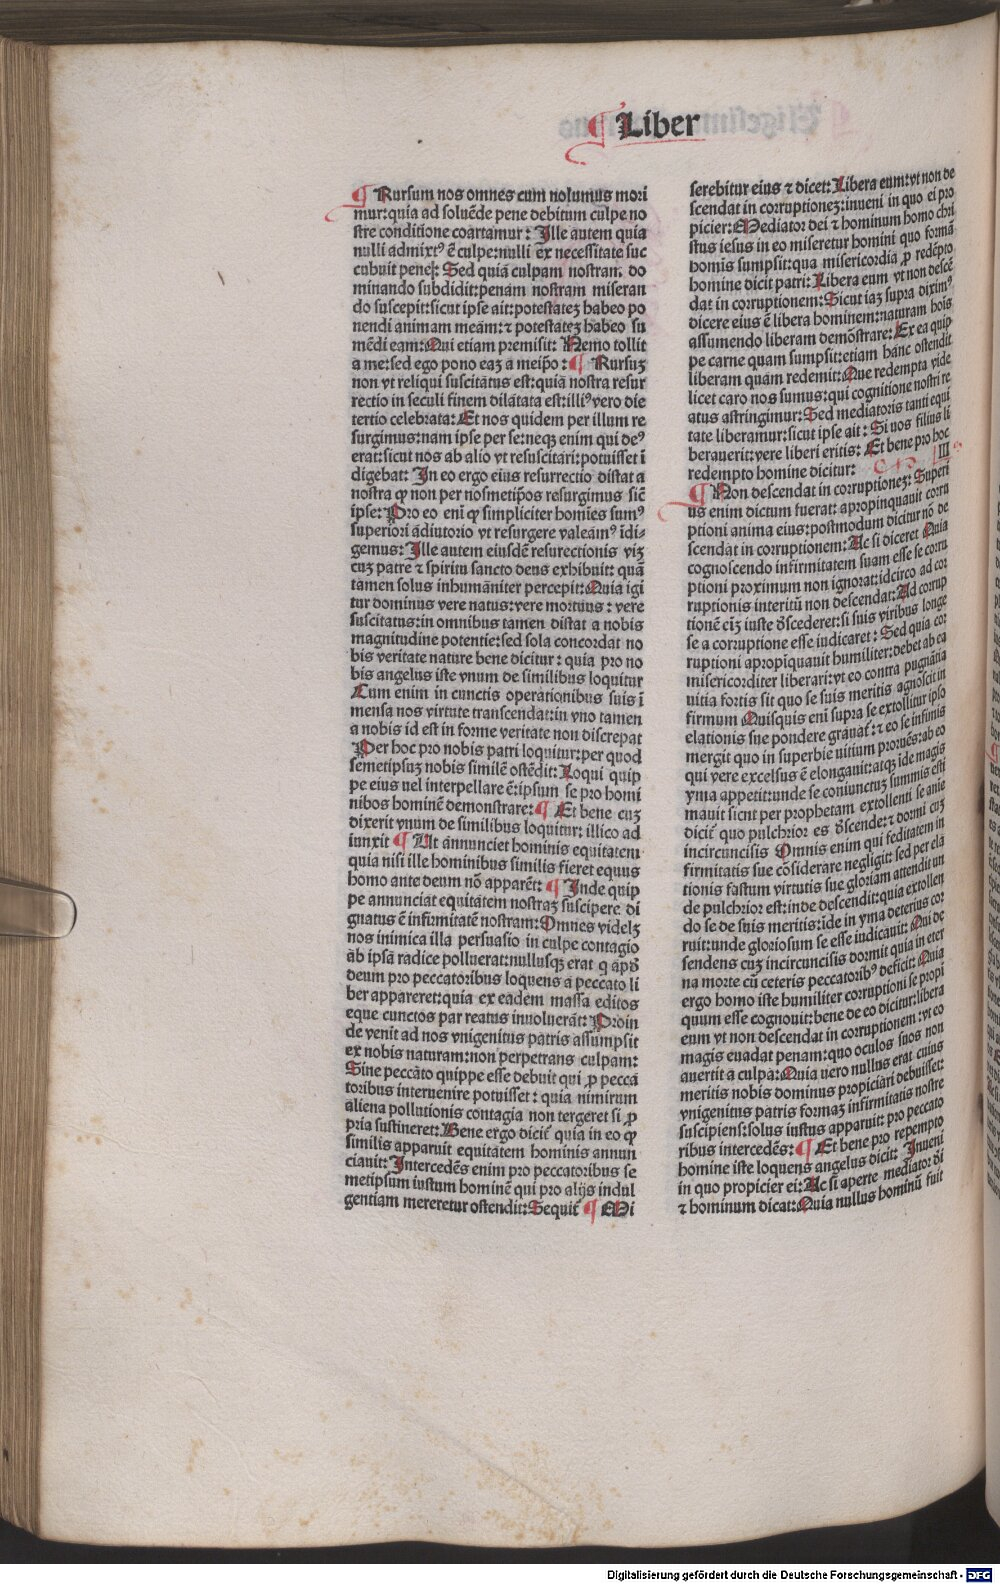 ¶ Liber
¶ Rursum nos omnes cum nolumus mori
mur: quia ad soluẽde pene debitum culpe no
stre conditione coartamur: Ille autem quia
nulli admixtꝰ ẽ culpe: nulli ex necessitate suc
cubuit pene: Sed quia culpam nostram do
minando subdidit: penam nostram miseran
do suscepit: sicut ipse ait: potestateꝫ habeo po
nendi animam meam: ⁊ potestateꝫ habeo su
mẽdi eam: Qui etiam premisit: Nemo tollit
a me: sed ego pono eaꝫ a meip̃o: ¶ Rursuꝫ
non vt reliqui suscitatus est: quia nostra resur
rectio in seculi finem dilatata est: illiꝰ vero die
tertio celebrata: Et nos quidem per illum re
surgimus: nam ipse per se: neqꝫ enim qui deꝰ
erat: sicut nos ab alio vt resuscitari: potuisset ĩ
digebat: In eo ergo eius resurrectio distat a
nostra ꝙ non per nosmetip̃os resurgimus sic̃
ipse: Pro eo eni ꝙ simpliciter homĩes sumꝰ
superiori adiutorio vt resurgere valeamꝰ ĩdi-
gemus: Ille autem eiusdẽ resurectionis viꝫ
cuꝫ patre ⁊ spiritu sancto deus exhibuit: quã
tamen solus inhumaniter percepit: Quia igi
tur dominus vere natus: vere mortuus: vere
suscitatus: in omnibus tamen distat a nobis
magnitudine potentie: sed sola concordat no
bis veritate nature bene dicitur: quia pro no
bis angelus iste vnum de similibus loquitur
Cum enim in cunctis operationibus suis ĩ
mensa nos virtute transcendat: in vno tamen
a nobis id est in forme veritate non discrepat
Per hoc pro nobis patri loquitur: per quod
semetipsuꝫ nobis similẽ ostẽdit: Loqui quip
pe eius uel interpellare ẽ: ipsum se pro homi
nibos hominẽ demonstrare: ¶ Et bene cuꝫ
dixerit vnum de similibus loquitur: illico ad
iunxit ¶ Ut annunciet hominis equitatem
quia nisi ille hominibus similis fieret equus
homo ante deum nõ apparẽt: ¶ Inde quip
pe annunciat equitatem nostraꝫ suscipere di
gnatus ẽ infirmitatẽ nostram: Omnes videlꝫ
nos inimica illa persuasio in culpe contagio
ab ipsa radice polluerat: nullusqꝫ erat q apð
deum pro peccatoribus loquens a peccato li
ber appareret: quia ex eadem massa editos
eque cunctos par reatus inuoluerãt: Proin
de venit ad nos vnigenitus patris assumpsit
ex nobis naturam: non perpetrans culpam:
Sine peccato quippe esse debuit qui ꝓ pecca
toribus interuenire potuisset: quia nimirum
aliena pollutionis contagia non tergeret si ꝓ
pria sustineret: Bene ergo dicit̃ quia in eo ꝙ
similis apparuit equitatem hominis annun
ciauit: Intercedẽs enim pro peccatoribus se
metipsum iustum hominẽ qui pro alijs indul
gentiam mereretur ostendit: Sequit̃ ¶ Mi
serebitur eius ⁊ dicet: Libera eum: vt non de
scendat in corruptioneꝫ: inueni in quo ei pro
picier: Mediator dei ⁊ hominum homo chri
stus iesus in eo miseretur homini quo formã
homis sumpsit: qua misericordia ꝓ redẽpto
homine dicit patri: Libera eum vt non descẽ
dat in corruptionem: Sicut iaꝫ supra diximꝰ
dicere eius ẽ libera hominem: naturam hois
assumendo liberam demõstrare: Ex ea quip
pe carne quam sumpsit: etiam hanc ostendit
liberam quam redemit: Que redempta vide
licet caro nos sumus: qui cognitione nostri re
atus astringimur: Sed mediatoris tanti equi
tate liberamur: sicut ipse ait: Si vos filius li
berauerit: vere liberi eritis: Et bene pro hoc
redempto homine dicitur: III
¶ Non descendat in corruptioneꝫ: Superi
us enim dictum fuerat: apropinquauit corru
ptioni anima eius: postmodum dicitur nõ de
scendat in corruptionem: Ac si diceret Quia
cognoscendo infirmitatem suam esse se corru
ptioni proximum non ignorat: idcirco ad cor
ruptionis interitũ non descendat: Ad corrup
tionẽ eiꝫ iuste ðscederet: si suis viribus longe
se a corruptione esse iudicaret: Sed quia cor
ruptioni apropiquauit humiliter: debet ab ea
misericorditer liberari: vt eo contra pugnãtia
uitia fortis sit quo se suis meritis agnoscit in
firmum Quisquis eni supra se extollitur ipso
elationis sue pondere grauat̃: ⁊ eo se infimis
mergit quo in superbie uitium proruẽs: ab eo
qui vere excelsus ẽ elongauit: atqꝫ ide magis
yma appetit: unde se coniunctuꝫ summis esti
mauit sicnt per prophetam extollenti se anie
dicit̃ quo pulchrior es ðscende: ⁊ dormi cuꝫ
incircuncisis Omnis enim qui feditatem in
firmitatis sue cõsiderare negligit: sed per ela
tionis fastum virtutis sue gloriam attendit un
de pulchrior est: inde descendit: quia extollen
do se de suis meritis: ide in yma deterius cor
ruit: unde gloriosum se esse indicauit: Qui de
sendens cuꝫ incircuncisis dormit quia in eter
na morte cũ ceteris peccatoribꝰ deficit: Quia
ergo homo iste humiliter corruptioni se propi
quum esse cognouit: bene de eo dicitur: libera
eum vt non descendat in corruptionem: vt eo
magis euadat penam: quo oculos suos non
auertit a culpa: Quia uero nullus erat cuius
meritis nobis dominus propiciari debuisset:
vnigenitus patris formaꝫ infirmitatis nostre
suscipiens: solus iustus apparuit: pro peccato
ribus intercedẽs: ¶ Et bene pro repempto
homine iste loquens angelus dicit: Inueni
in quo propicier ei: Ac si aperte mediator ðĩ
⁊ hominum dicat: Quia nullus hominũ fuit
Digitalisierung gefördert durch die Deutsche Forschungsgemeinschaft - DFG